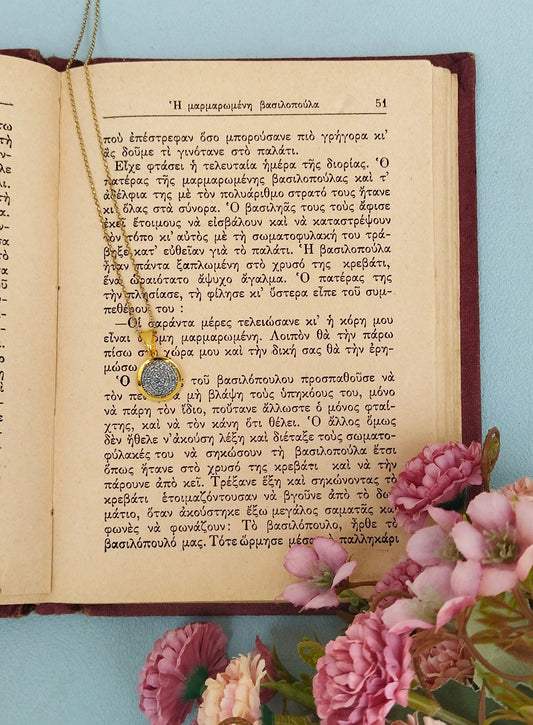 Ἡ μαρμαρωμένη βασιλοπούλα 51
ποὺ ἐπέστρεφαν ὅσο μπορούσανε πιὸ γρήγορα κι᾽
ἂς δοῦμε τί γινότανε στὸ παλάτι.
Εἶχε φτάσει ἡ τελευταία ἡμέρα τῆς διορίας. Ὁ
πατέρας τῆς μαρμαρωμένης βασιλοπούλας καὶ τ᾽
ἀδέλφια της μὲ τὸν πολυάριθμο στρατό τους ἤτανε
κι ὅλας στὰ σύνορα. Ὁ βασιληᾶς τους τοὺς ἄφισε
ἐκεῖ ἕτοιμους νὰ εἰσβάλουν καὶ νὰ καταστρέψουν
τὸν τόπο κι᾽ αὐτὸς μὲ τὴ σωματοφυλακή του τρά-
βηξε κατ᾽ εὐθεῖαν γιὰ τὸ παλάτι. Ἡ βασιλοπούλα
ἦταν πάντα ξαπλωμένη στὸ χρυσό της κρεβάτι,
ἕνα ὡραιότατο ἄψυχο ἄγαλμα. Ὁ πατέρας της
τὴν πλησίασε, τὴ φίλησε κι᾽ ὕστερα εἶπε τοῦ συμ-
πεθέρου του :
—Οἱ σαράντα μέρες τελειώσανε κι᾽ ἡ κόρη μου
εἶναι μαρμαρωμένη. Λοιπὸν θὰ τὴν πάρω
πίσω χώρα μου καὶ τὴν δική σας θὰ τὴν ἐρη-
μώσω
Ὁ τοῦ βασιλόπουλου προσπαθοῦσε νὰ
τὸν μὴ βλάψη τοὺς ὑπηκόους του, μόνο
νὰ πάρη τὸν ἴδιο, ποὔτανε ἄλλωστε ὁ μόνος φταί-
χτης, καὶ νὰ τὸν κάνη ὅτι θέλει. Ὁ ἄλλος ὅμως
δὲν ἤθελε ν᾽ ἀκούση λέξη καὶ διέταξε τοὺς σωματο-
φύλακές του νὰ σηκώσουν τὴ βασιλοπούλα ἔτσι
ὅπως ἤτανε στὸ χρυσό της κρεβάτι καὶ νὰ τὴν
πάρουνε ἀπὸ κεῖ. Τρέξανε ἕξη καὶ σηκώνοντας τὸ
κρεβάτι ἑτοιμαζόντουσαν νὰ βγοῦνε ἀπὸ τὸ δω-
μάτιο, ὅταν ἀκούστηκε ἔξω μεγάλος σαματᾶς καὶ
φωνὲς νὰ φωνάζουν: Τὸ βασιλόπουλο, ἦρθε τὸ
βασιλόπουλό μας. Τότε ὥρμησε μέσα τὸ παλληκάρι